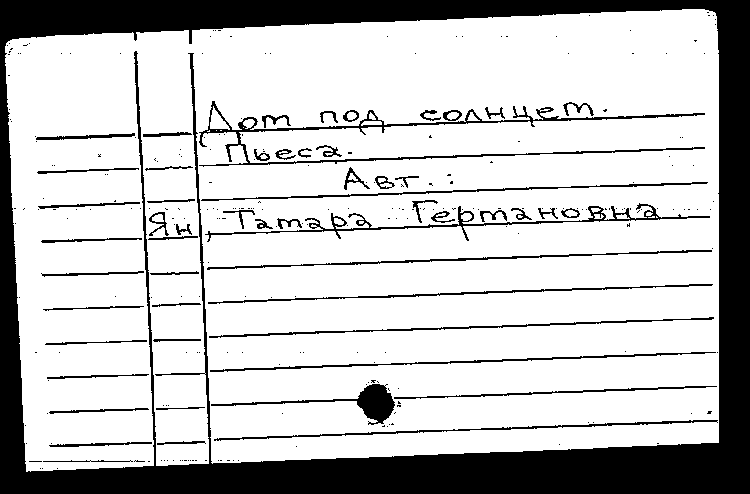 Дом под солнцем.
Пьеса.
Авт.:
Ян, Тамара Германовна.